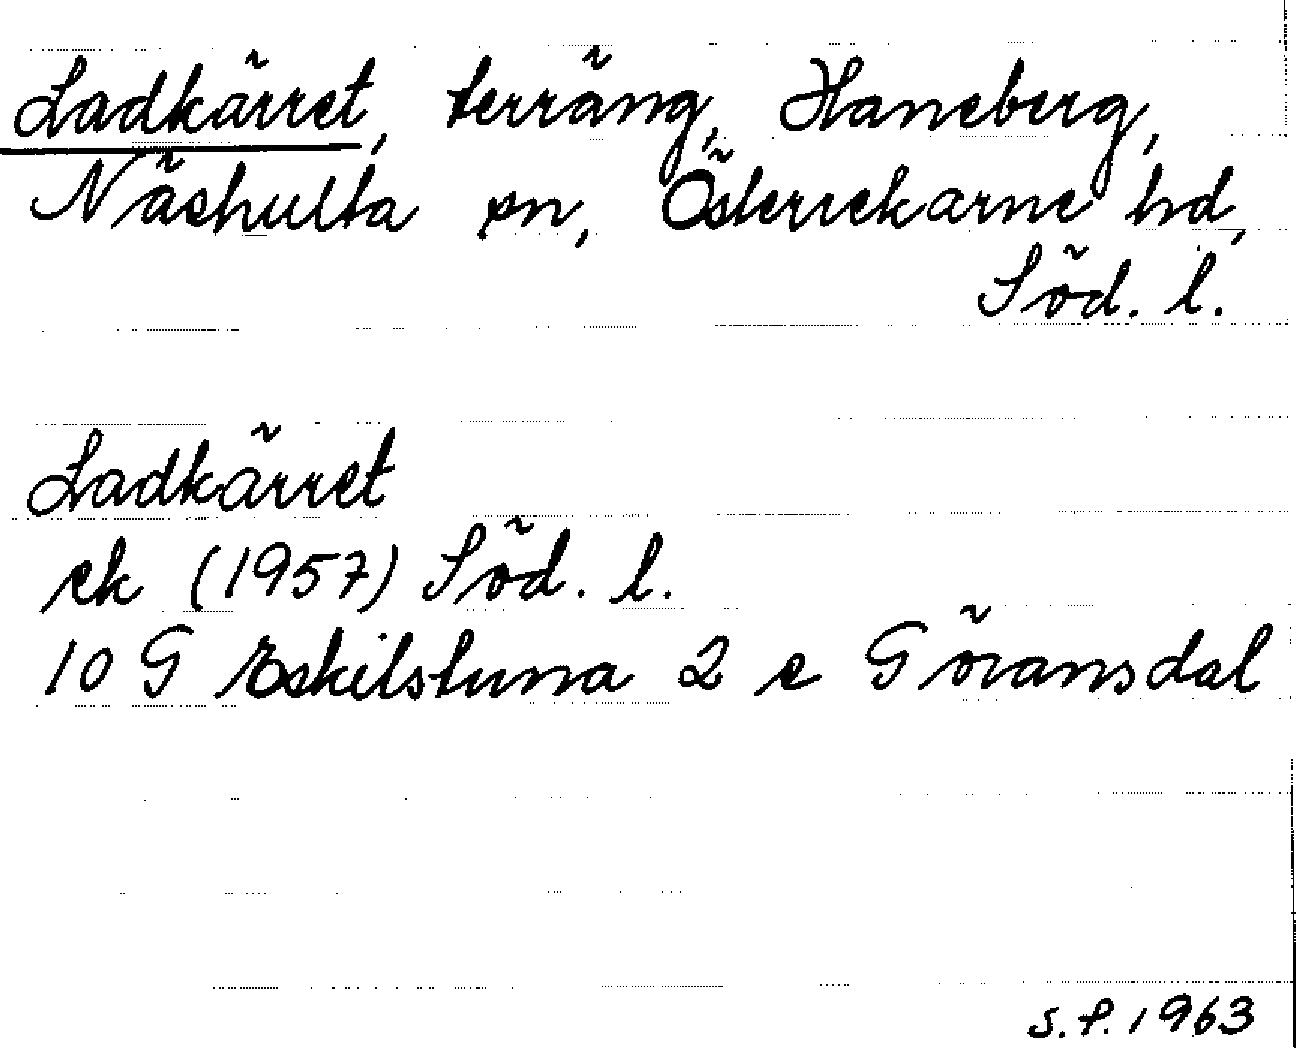 Ladkärret, terräng, Haneberg,
Näshulta sn, Österrekarne hd,
Söd. l.
Ladkärret
ek (1957) Söd. l.
10 G Eskilstuna 2 e Göransdal
S.P. 1963